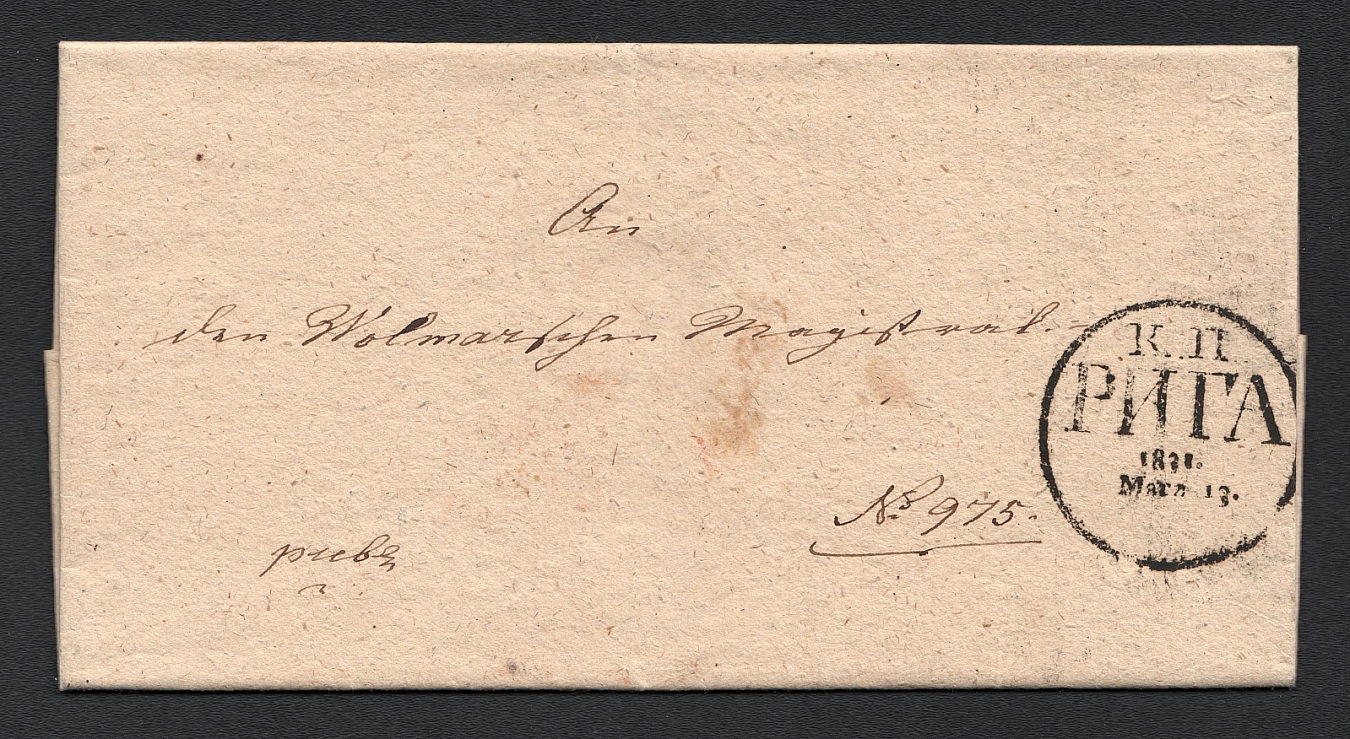 An
den Wolmarschen Magistrat.
К.П.
РИГА
1831.
Мата 13.
№ 975.